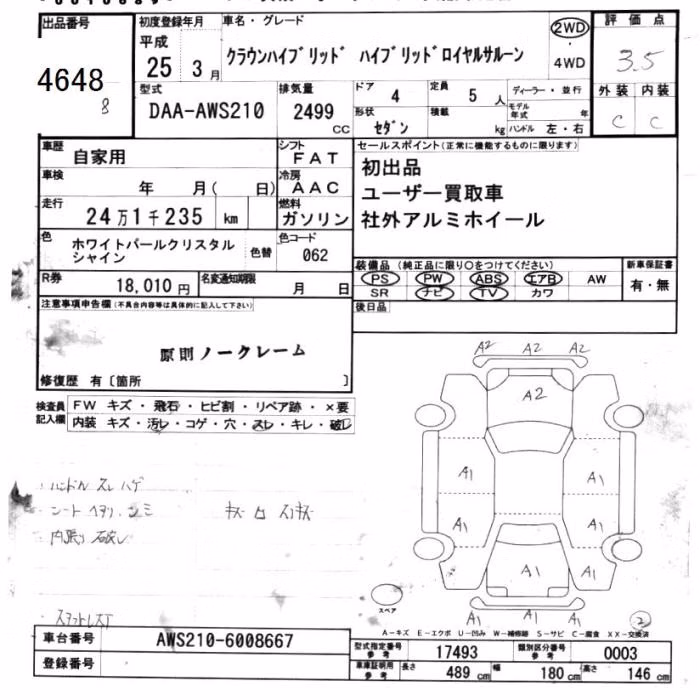 出品番号 初度登録年月 車名・グレード 2WD 評価点
平成
4648 25 3月 クラウンハイブリッド ハイブリッドロイヤルサルーン 4WD 3.5
8 型式 排気量 ドア 4 定員 5人 ディーラー・並行 外装 内装
DAA-AWS210 2499 CC 形状 セダン 積載 kg モデル年式 年 C C
ハンドル 左・右
車歴 自家用 シフト FAT セールスポイント(正常に機能するものに限ります)
車検 年 月( 日) 冷房 AAC 初出品
走行 24万1千235 km 燃料 ガソリン ユーザー買取車
社外アルミホイール
色 ホワイトパールクリスタルシャイン 色替 色コード 062
装備品(純正品に限り○をつけてください) 新車保証書
R券 18,010円 名変通知期限 月 日 PS PW ABS エアB AW 有・無
SR ナビ TV カワ
注意事項申告欄(不具合内容等は具体的に記入して下さい) 後日品
原則ノークレーム
修復歴 有〔箇所 〕
検査員記入欄 FW キズ・飛石・ヒビ割・リペア跡・×要
内装 キズ・汚レ・コゲ・穴・スレ・キレ・破レ
A2 A2 A2
A2
・ハンドル スレ ハゲ
・シート ヘタリ、シミ
内張り 破レ
A1 A1
A1 A1
A1 A1
A1 A1 A1
スペア
2
A-キズ E-エクボ U-凹み W-補修跡 S-サビ C-腐食 XX-交換済
車台番号 AWS210-6008667 型式指定番号 参考 17493 類別区分番号 参考 0003
登録番号 車庫証明用 参考 長さ 489 cm 幅 180 cm 高さ 146 cm